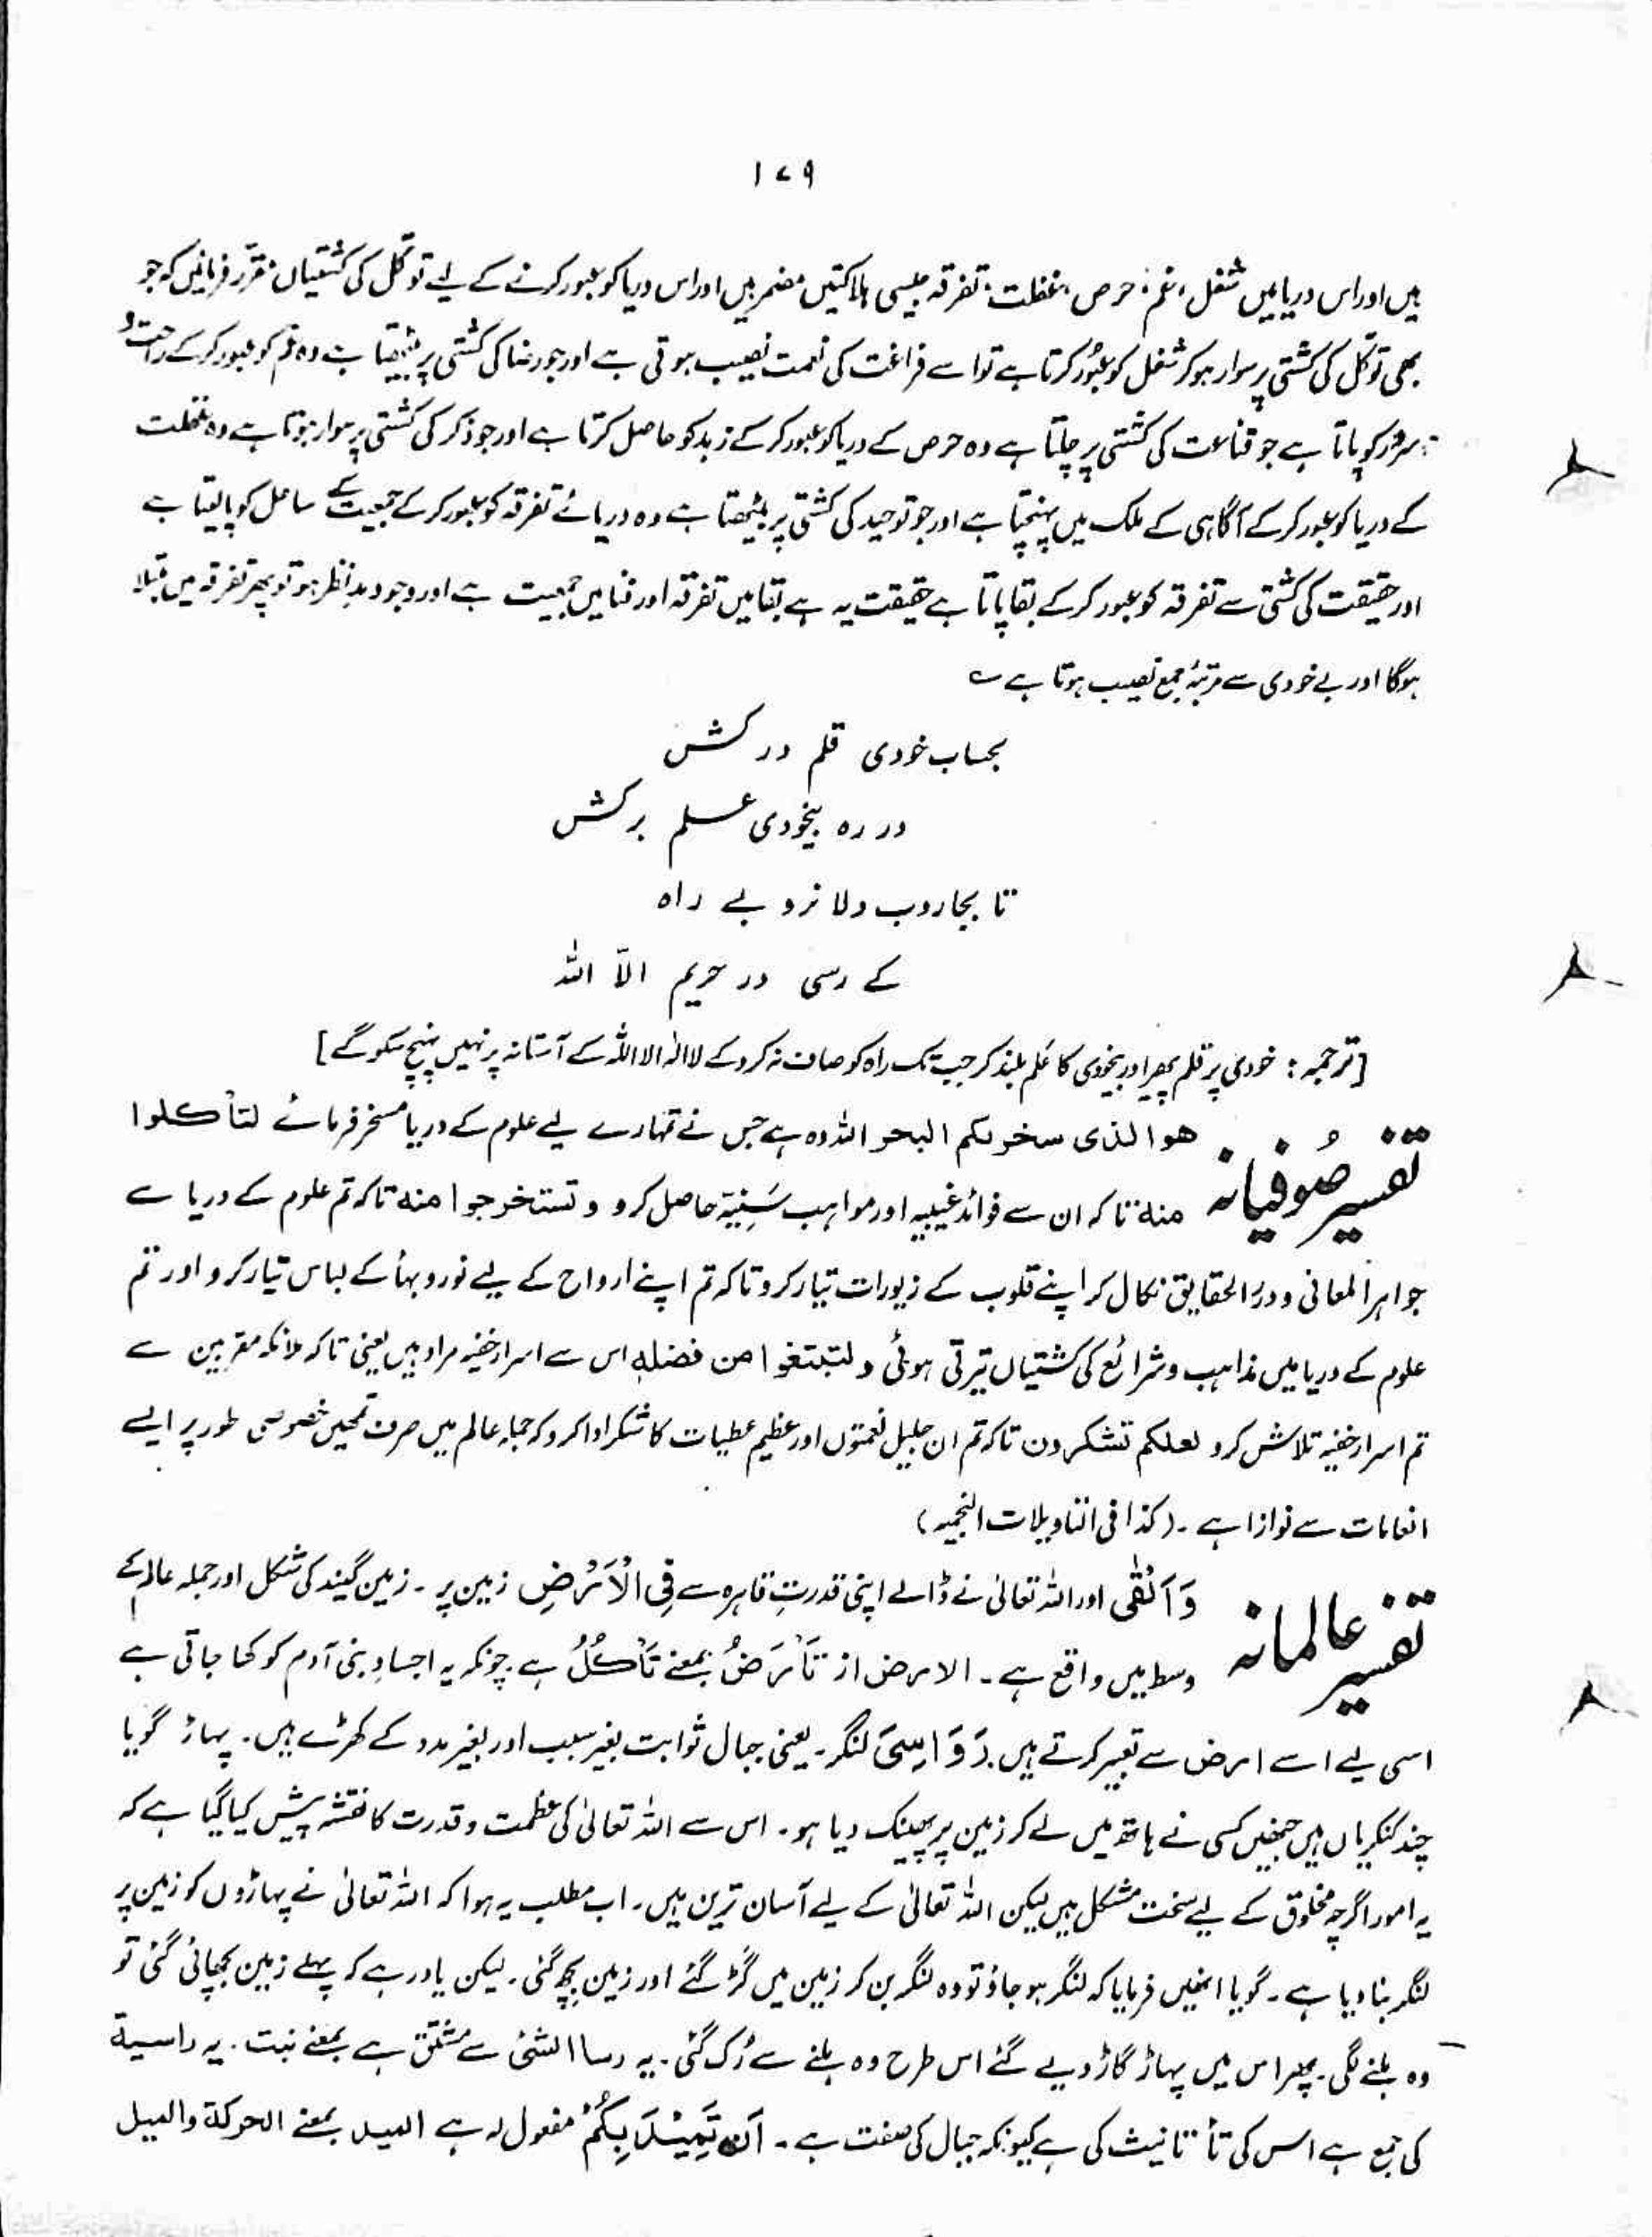 ۱۷۹
ہیں اور اس دریا میں شغل، غم، حرص، غفلت، تفرقہ جیسی ہلاکتیں مضمر ہیں اور اس دریا کو عبور کرنے کے لیے توکّل کی کشتیاں مقرّر فرمائیں کہ جو
بھی توکّل کی کشتی پر سوار ہو کر شغل کو عبُور کرتا ہے تو اسے فراغت کی نعمت نصیب ہوتی ہے اور جو رضا کی کشتی پر بیٹھتا ہے وہ غم کو عبور کر کے راحت و
سرور کو پاتا ہے جو قناعت کی کشتی پر چلتا ہے وہ حرص کے دریا کو عبور کر کے زہد کو حاصل کرتا ہے اور جو ذکر کی کشتی پر سوار ہوتا ہے وہ غفلت
کے دریا کو عبور کر کے آگاہی کے ملک میں پہنچتا ہے اور جو توحید کی کشتی پر بیٹھتا ہے وہ دریائے تفرقہ کو عبور کر کے جمعیت کے ساحل کو پالیتا ہے
اور حقیقت کی کشتی سے تفرقہ کو عبور کر کے بقا پاتا ہے حقیقت یہ ہے بقا میں تفرقہ اور فنا میں جمعیت ہے اور وجود مدِ نظر ہو تو پھر تفرقہ میں مبتلا
ہوگا اور بے خودی سے مرتبۂ جمع نصیب ہوتا ہے ؎
بحساب خودی قلم درکش
در رہ بیخودی علم برکش
تا بجاروب دلا نرو بے راہ
کے رسی در حریم الاّ اللہ
[ترجمہ: خودی پر قلم پھیر اور بیخودی کا عَلم بلند کر جب تک راہ کو صاف نہ کرو گے لا الٰہ الا اللہ کے آستانہ پر نہیں پہنچ سکو گے]
تفسیر صُوفیانہ ھو الذی سخر لکم البحر اللہ وہ ہے جس نے تمہارے لیے علوم کے دریا مسخر فرمائے لتأکلوا
منہ تاکہ ان سے فوائد غیبیہ اور مواہب سَنِیّۃ حاصل کرو و تستخرجوا منہ تاکہ تم علوم کے دریا سے
جواہر المعانی و درر الحقایق نکال کر اپنے قلوب کے زیورات تیار کرو تاکہ تم اپنے ارواح کے لیے نور و بہأ کے لباس تیار کرو اور تم
علوم کے دریا میں مذاہب و شرائع کی کشتیاں تیرتی ہوئی و لتبتغوا من فضلہ اس سے اسرار خفیہ مراد ہیں یعنی تاکہ ملائکہ مقربین سے
تم اسرار خفیہ تلاش کرو لعلکم تشکرون تاکہ تم ان جلیل نعمتوں اور عظیم عطیات کا شکر ادا کرو کہ جملہ عالم میں صرف تمھیں خصوصی طور پر ایسے
انعامات سے نوازا ہے۔ (کذا فی التاویلات النجمیہ)
تفسیر عالمانہ وَاَلْقٰی اور اللہ تعالیٰ نے ڈالے اپنی قدرتِ قاہرہ سے فِی الْاَرْضِ زمین پر۔ زمین گیند کی شکل اور جملہ عالم کے
وسط میں واقع ہے۔ الارض از تَأْرَضُ بمعنے تَأْکُلُ ہے چونکہ یہ اجسادِ بنی آدم کو کھا جاتی ہے
اسی لیے اسے ارض سے تعبیر کرتے ہیں۔ رَوَاسِیَ لنگر۔ یعنی جبال ثوابت بغیر سبب اور بغیر مدد کے کھڑے ہیں۔ پہاڑ گویا
چند کنکریاں ہیں جنھیں کسی نے ہاتھ میں لے کر زمین پر پھینک دیا ہو۔ اس سے اللہ تعالیٰ کی عظمت و قدرت کا نقشہ پیش کیا گیا ہے کہ
یہ امور اگرچہ مخلوق کے لیے سخت مشکل ہیں لیکن اللہ تعالیٰ کے لیے آسان ترین ہیں۔ اب مطلب یہ ہوا کہ اللہ تعالیٰ نے پہاڑوں کو زمین پر
لنگر بنا دیا ہے۔ گویا انھیں فرمایا کہ لنگر ہو جاؤ تو وہ لنگر بن کر زمین میں گڑ گئے اور زمین بچھ گئی۔ لیکن یاد رہے کہ پہلے زمین بچھائی گئی تو
وہ ہلنے لگی۔ پھر اس میں پہاڑ گاڑ دیے گئے اس طرح وہ ہلنے سے رُک گئی۔ یہ رسا الشئ سے مشتق ہے بمعنے ثبت۔ یہ راسیۃ
کی جمع ہے اس کی تأ تانیث کی ہے کیونکہ جبال کی صفت ہے۔ اَنْ تَمِیْدَ بِکُمْ مفعول لہ ہے المید بمعنے الحرکۃ والمیل